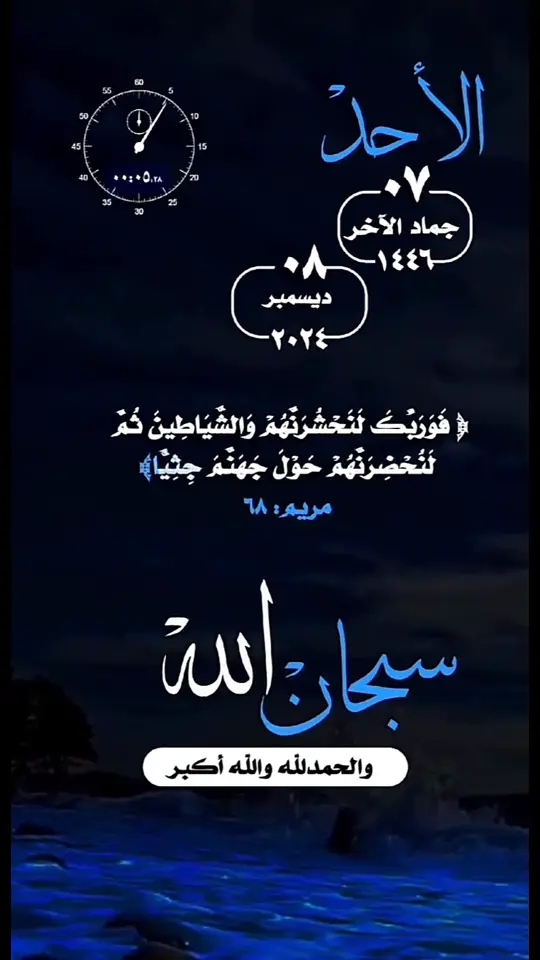 الأحد
٠٧
جماد الآخر
١٤٤٦
٠٨
ديسمبر
٢٠٢٤
60
5
10
15
20
25
30
35
40
45
50
55
٠٠:٠٥,٢٨
﴿ فَوَرَبِّكَ لَنَحْشُرَنَّهُمْ وَالشَّيَاطِينَ ثُمَّ
لَنُحْضِرَنَّهُمْ حَوْلَ جَهَنَّمَ جِثِيًّا﴾
مريم: ٦٨
سبحان الله
والحمدلله والله أكبر